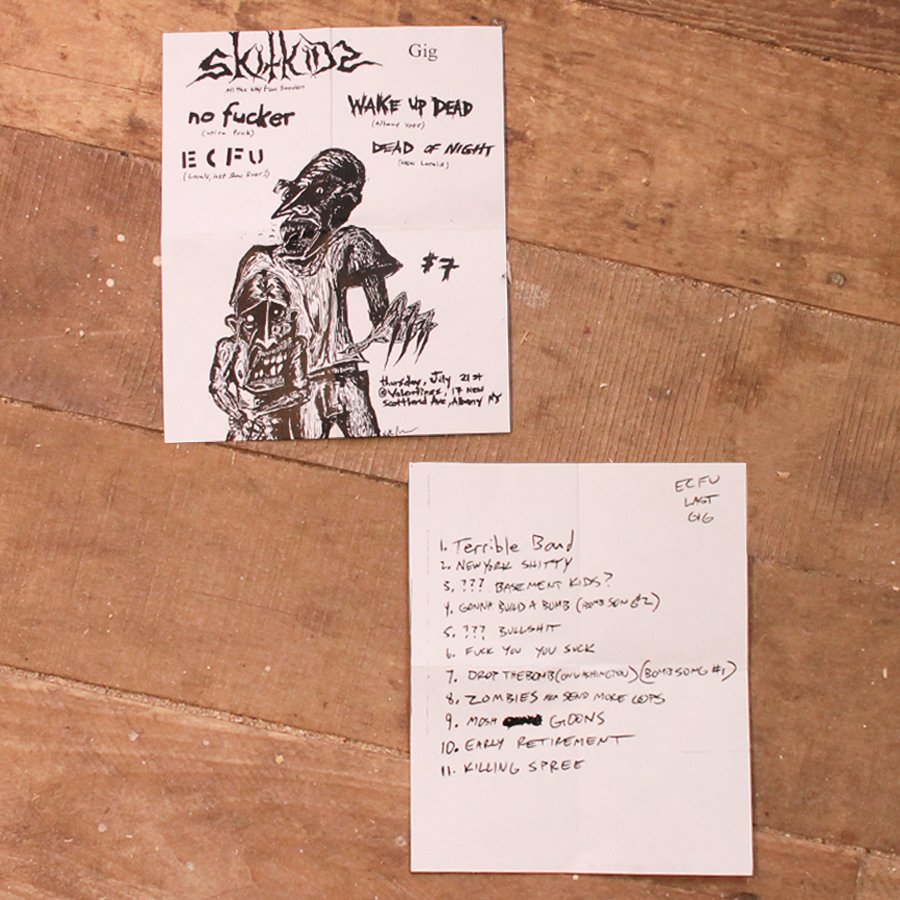 SKITKIDS
Gig
All the way from Sweden
no fucker
(utica punk)
WAKE UP DEAD
(Albany
ECFU
(Locals, last show Ever!)
DEAD OF NIGHT
(NEW Locals)
$7
thursday, July 21st
@Valentines, 17 NEW
Scottland Ave, Albany NY
ECFU
LAST
GIG
1. Terrible Band
2. NEW YORK SHITTY
3. ??? BASEMENT KIDS?
4. GONNA BUILD A BOMB (BOMB SONG #2)
5. ??? BULLSHIT
6. FUCK YOU YOU SUCK
7. DROP THE BOMB (ON WASHINGTON) (BOMB SONG #1)
8. ZOMBIES AKA SEND MORE COPS
9. MOSH GOONS
10. EARLY RETIREMENT
11. KILLING SPREE